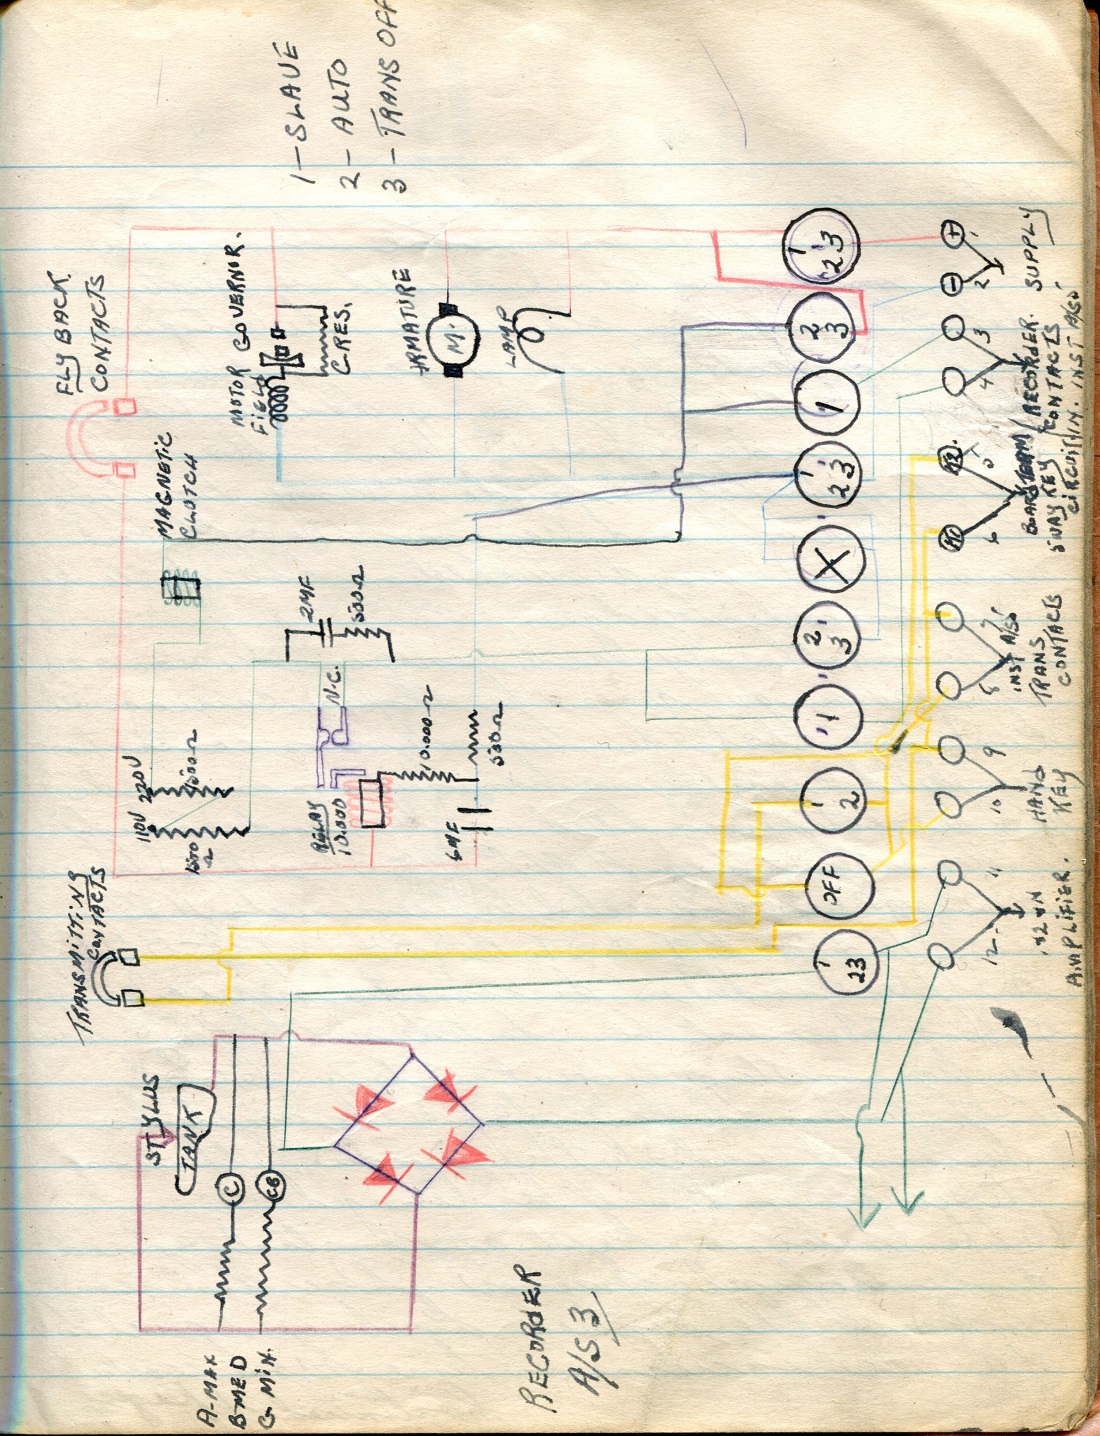 1 – SLAVE
2 – AUTO
3 – TRANS OFF
FLY BACK
CONTACTS
MOTOR GOVERNOR.
FIELD
C.RES.
ARMATURE
M.
LAMP
MAGNETIC
CLUTCH
2MF
500Ω
N.C.
110V 220V
1500
Ω
1500Ω
RELAY
10.000
10.000Ω
6MF
500Ω
TRANSMITTING
CONTACTS
STYLUS
TANK
C
CB
A-MAX
B-MED
C-MIN.
RECORDER
A/S 3
1 23
23
1
1 23
X
2 3
1
1 2
OFF
1 23
+ 1
- 2
SUPPLY
3
4
RECORDER.
CONTACTS
IN. INST A/S5
5
6
5WAY KEY
CIRCUIT
7
8
INST A/S5
TRANS
CONTACTS
9
10
HAND
KEY
11
12
AMPLIFIER.